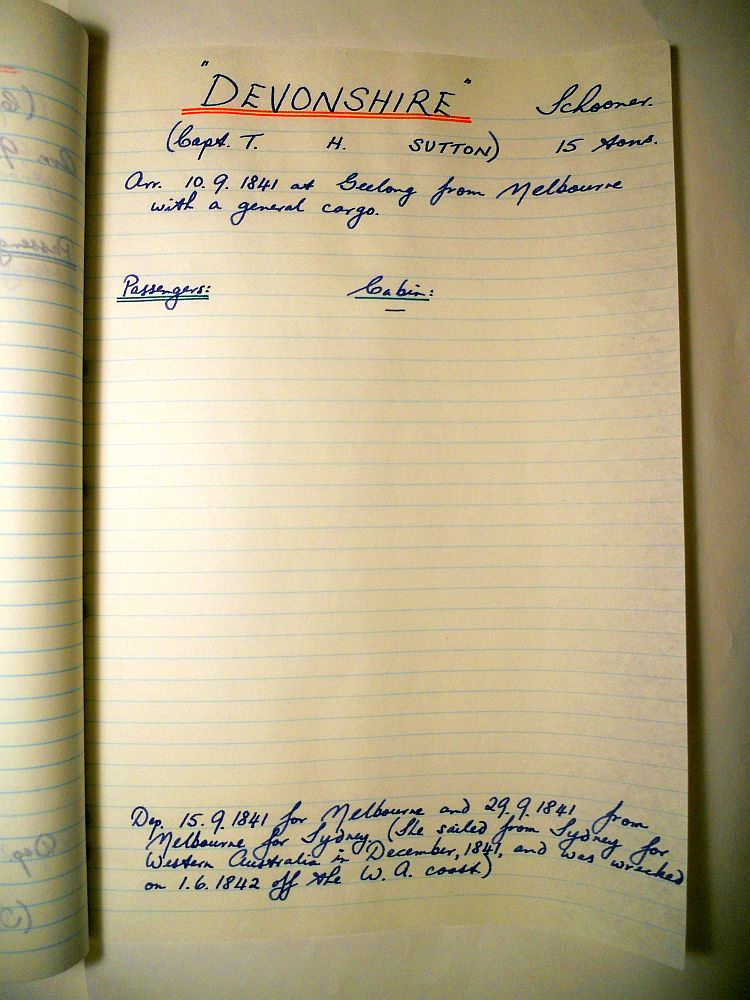 "DEVONSHIRE" Schooner.
(Capt. T. H. SUTTON) 15 tons.
Arr. 10.9.1841 at Geelong from Melbourne
with a general cargo.
Passengers: Cabin:
—
Dep. 15.9.1841 for Melbourne and 29.9.1841 from
Melbourne for Sydney. (She sailed from Sydney for
Western Australia in December, 1841, and was wrecked
on 1.6.1842 off the W.A. coast.)